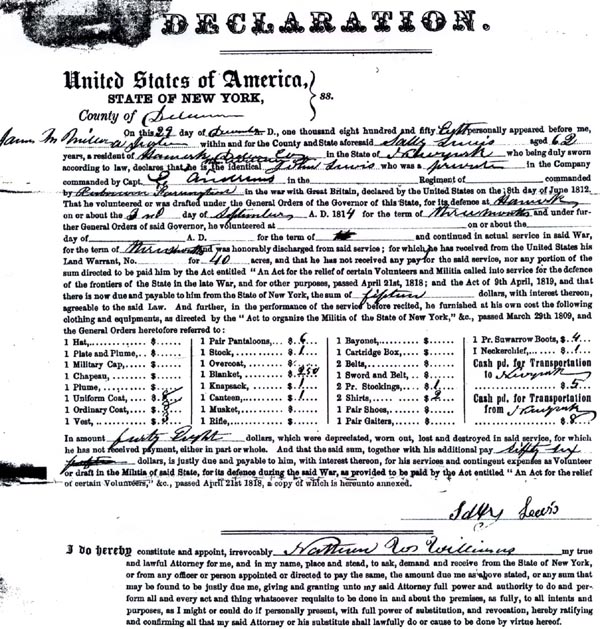 DECLARATION.
United States of America,
STATE OF NEW YORK, } ss.
County of
On this 29 day of December A. D., one thousand eight hundred and fifty Eight personally appeared before me,
James M within and for the County and State aforesaid Sally Lewis aged 62
years, a resident of in the State of Newyork who being duly sworn
according to law, declares that he is the identical John Lewis who was a private in the Company
commanded by Capt. in the Regiment of commanded
by in the war with Great Britain, declared by the United States on the 18th day of June 1812.
That he volunteered or was drafted under the General Orders of the Governor of this State, for its defence at
on or about the 2nd day of September A. D. 1814 for the term of three months and under fur-
ther General Orders of said Governor, he volunteered at on or about the
day of A. D. for the term of and continued in actual service in said War,
for the term of and was honorably discharged from said service; for which he has received from the United States his
Land Warrant, No. for 40 acres, and that he has not received any pay for the said service, nor any portion of the
sum directed to be paid him by the Act entitled " An Act for the relief of certain Volunteers and Militia called into service for the defence
of the frontiers of the State in the late War, and for other purposes, passed April 21st, 1818; and the Act of 9th April, 1819, and that
there is now due and payable to him from the State of New York, the sum of fifteen dollars, with interest thereon,
agreeable to the said Law. And further, in the performance of the service before recited, he furnished at his own cost the following
clothing and equipments, as directed by the "Act to organize the Militia of the State of New York," &c., passed March 29th 1809, and
the General Orders heretofore referred to:
1 Hat,........ $...... 1 Pair Pantaloons,.. $ 6 1 Bayonet,....... $...... 1 Pr. Suwarrow Boots, $ 4
1 Plate and Plume,.. $...... 1 Stock,....... $ 1 1 Cartridge Box,.... $...... 1 Neckerchief,.... $ 1
1 Military Cap,.... $...... 1 Overcoat,..... $...... 2 Belts,........ $...... Cash pd. for Transportation
1 Chapeau,...... $...... 1 Blanket,..... $ 2 50 1 Sword and Belt,... $...... to Newyork
1 Plume,....... $...... 1 Knapsack,.... $ 1 2 Pr. Stockings,.... $ 1 $ 5
1 Uniform Coat,.... $ 8 1 Canteen,..... $ 1 2 Shirts,........ $ 2 Cash pd. for Transportation
1 Ordinary Coat,... $ 1 Musket,...... $...... 1 Pair Shoes,..... $...... from Newyork
1 Vest,........ $ 1 Rifle,....... $...... 1 Pair Gaiters,.... $...... $ 8
In amount forty Eight dollars, which were depreciated, worn out, lost and destroyed in said service, for which
he has not received payment, either in part or whole. And that the said sum, together with his additional pay
dollars, is justly due and payable to him, with interest thereon, for his services and contingent expenses as Volunteer
or draft in the Militia of said State, for its defence during the said War, as provided to be paid by the Act entitled "An Act for the relief
of certain Volunteers," &c., passed April 21st 1818, a copy of which is hereunto annexed.
Sally Lewis
I do hereby constitute and appoint, irrevocably Williams my true
and lawful Attorney for me, and in my name, place and stead, to ask, demand and receive from the State of New York,
or from any officer or person appointed or directed to pay the same, the amount due me as above stated, or any sum that
may be found to be justly due me, giving and granting unto my said Attorney full power and authority to do and per-
form all and every act and thing whatsoever requisite to be done in and about the premises, as fully, to all intents and
purposes, as I might or could do if personally present, with full power of substitution, and revocation, hereby ratifying
and confirming all that my said Attorney or his substitute shall lawfully do or cause to be done by virtue hereof.